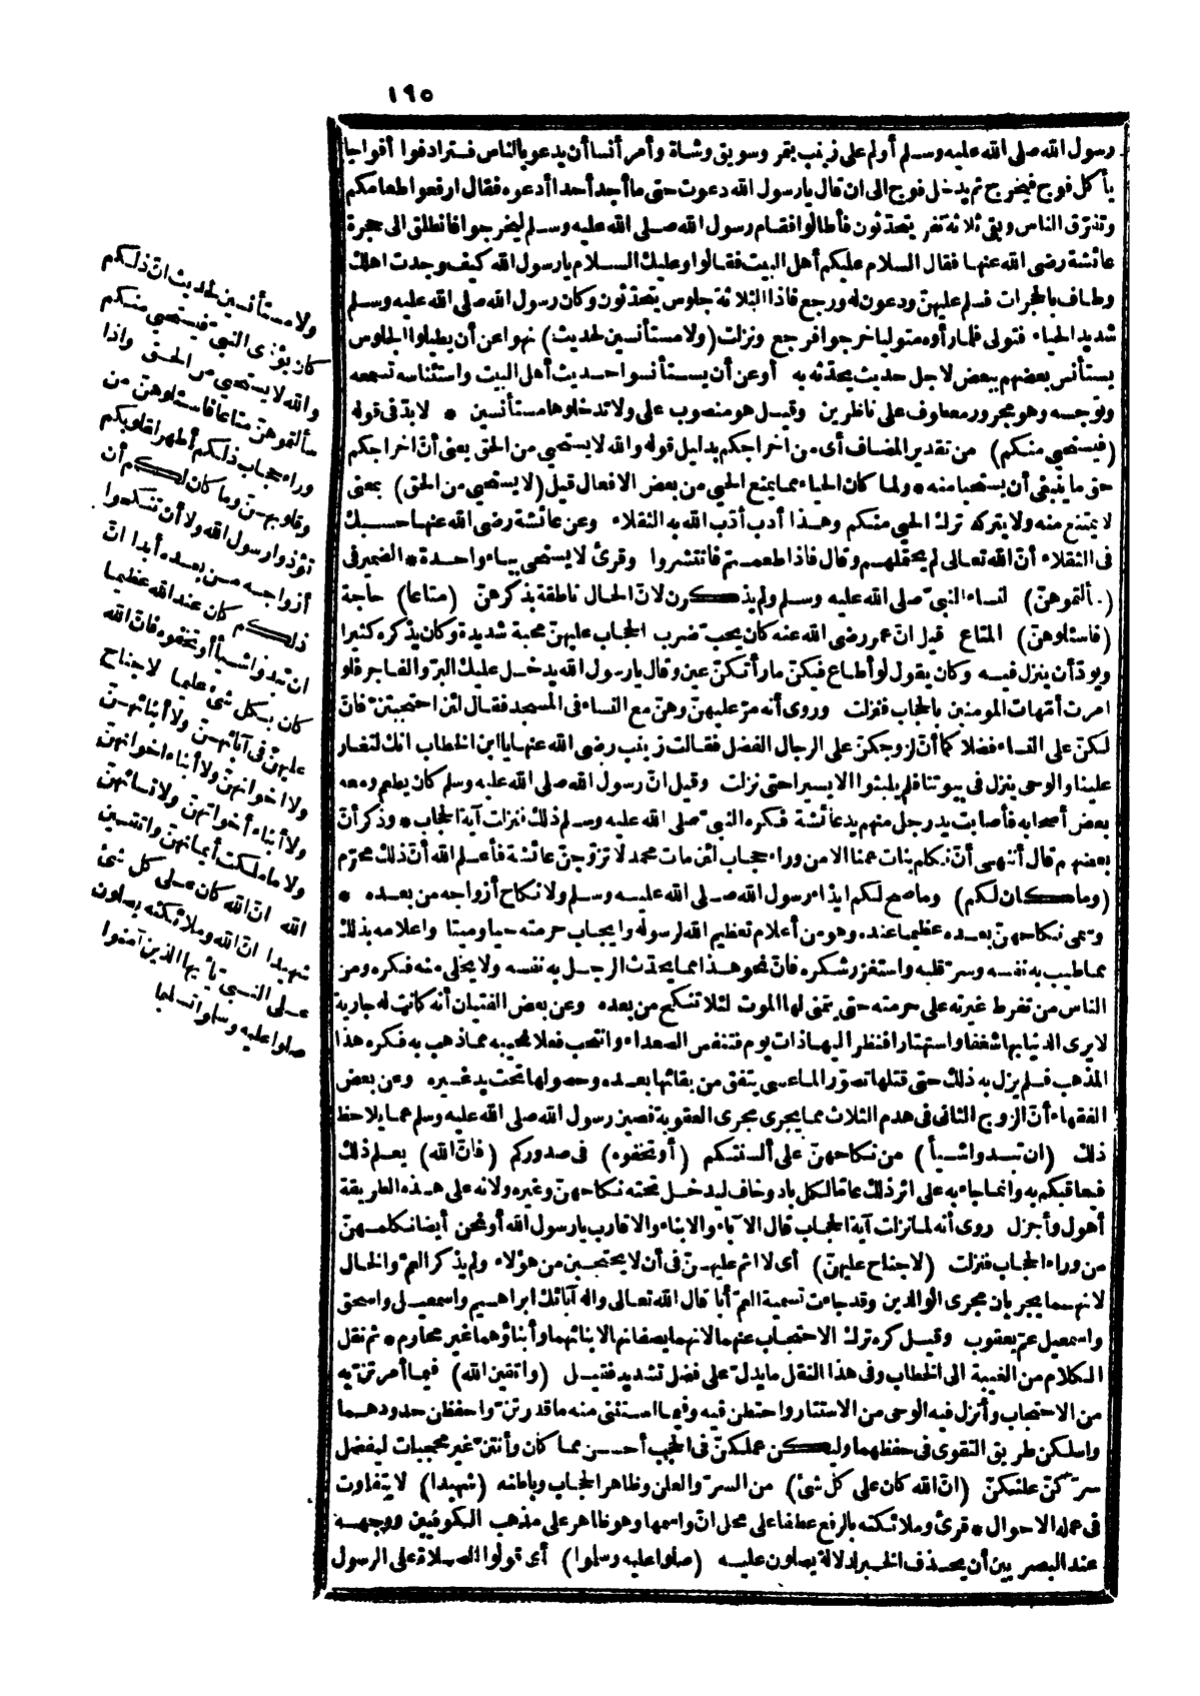 ١٩٥
رسول الله صلى الله عليه وسلم أولم على زينب بتمر وسويق وشاة وأمر أنسا أن يدعو بالناس فترادفوا أفواجا
يأكل فوج فيخرج ثم يدخل فوج الى ان قال يا رسول الله دعوت حتى ما أجد أحدا أدعوه فقال ارفعوا طعامكم
وتفرق الناس وبقى ثلاثة نفر يتحدثون فأطالوا فقام رسول الله صلى الله عليه وسلم ليخرجوا فانطلق الى حجرة
عائشة رضى الله عنها فقال السلام عليكم أهل البيت فقالوا وعليك السلام يا رسول الله كيف وجدت اهلك
وطاف بالحجرات فسلم عليهن ودعون له ورجع فاذا الثلاثة جلوس يتحدثون وكان رسول الله صلى الله عليه وسلم
شديد الحياء فتولى فلما رأوه متوليا خرجوا فرجع ونزلت (ولا مستأنسين لحديث) نهوا عن أن يطيلوا الجلوس
يستأنس بعضهم ببعض لاجل حديث يحدثه به أو عن أن يستأنسوا حديث أهل البيت واستئناسه تسمعه
وتوجسه وهو مجرور معطوف على ناظرين وقيل هو منصوب على ولا تدخلوها مستأنسين * لابد فى قوله
(فيستحيي منكم) من تقدير المضاف أى من اخراجكم بدليل قوله والله لا يستحيي من الحق يعنى أنّ اخراجكم
حق ما ينبغى أن يستحيا منه * ولما كان الحياء مما يمنع الحيي من بعض الافعال قيل (لا يستحيي من الحق) بمعنى
لا يمتنع منه ولا يتركه ترك الحيي منكم وهذا أدب أدّب الله به الثقلاء وعن عائشة رضى الله عنها حسبك
فى الثقلاء أنّ الله تعالى لم يحتملهم وقال فاذا طعمتم فانتشروا وقرئ لا يستحى بياء واحدة * الضمير فى
(سألتموهنّ) لنساء النبىّ صلى الله عليه وسلم ولم يذكرن لانّ الحال ناطقة بذكرهنّ (متاعا) حاجة
(فاسئلوهنّ) المتاع قيل انّ عمر رضى الله عنه كان يحب ضرب الحجاب عليهنّ محبة شديدة وكان يذكره كثيرا
ويودّ أن ينزل فيه وكان يقول لو أطاع فيكنّ ما رأتكنّ عين وقال يا رسول الله يدخل عليك البرّ والفاجر فلو
امرت أمّهات المؤمنين بالحجاب فنزلت وروى أنه مرّ عليهنّ وهنّ مع النساء فى المسجد فقال لئن احتجبتنّ فانّ
لكنّ على النساء فضلا كما أنّ لزوجكنّ على الرجال الفضل فقالت زينب رضى الله عنها يا ابن الخطاب انك لتغار
علينا والوحى ينزل فى بيوتنا فلم يلبثوا الا يسيرا حتى نزلت وقيل انّ رسول الله صلى الله عليه وسلم كان يطعم ومعه
بعض أصحابه فأصابت يد رجل منهم يد عائشة فكره النبىّ صلى الله عليه وسلم ذلك فنزلت آية الحجاب * وذكر أنّ
بعضهم قال أننهى أن نكلم بنات عمنا الا من وراء حجاب لئن مات محمد لا تزوّجنّ عائشة فأعلم الله أنّ ذلك محرّم
(وما كان لكم) وما صح لكم ايذاء رسول الله صلى الله عليه وسلم ولا نكاح أزواجه من بعده *
وسمى نكاحهنّ بعده عظيما عنده وهو من أعلام تعظيم الله لرسوله وايجاب حرمته حيا وميتا واعلامه بذلك
مما طيب به نفسه وسرّ قلبه واستغزر شكره فانّ نحو هذا مما يحدّث الرجل به نفسه ولا يخلى منه فكره ومن
الناس من تفرط غيرته على حرمته حتى يتمنى لها الموت لئلا تنكح من بعده وعن بعض الفتيان أنه كانت له جارية
لا يرى الدنيا بها شغفا واستهتارا فنظر اليها ذات يوم فتنفس الصعداء وانتحب فعلا نحيبه مما ذهب به فكره هذا
المذهب فلم يزل به ذلك حتى قتلها تصوّر الما عسى يتفق من بقائها بعده وحصولها تحت يد غيره وعن بعض
الفقهاء أنّ الزوج الثانى فى هدم الثلاث مما يجرى مجرى العقوبة فصين رسول الله صلى الله عليه وسلم عما يلاحظ
ذلك (ان تبدوا شيأ) من نكاحهنّ على ألسنتكم (أو تخفوه) فى صدوركم (فانّ الله) يعلم ذلك
فيعاقبكم به وانما جاء به على اثر ذلك عاما لكل باد وخاف ليدخل تحته نكاحهنّ وغيره ولانه على هذه الطريقة
أهول وأجزل روى أنه لما نزلت آية الحجاب قال الآباء والابناء والاقارب يا رسول الله أو نحن أيضا نكلمهنّ
من وراء الحجاب فنزلت (لا جناح عليهنّ) أى لا اثم عليهنّ فى أن لا يحتجبن من هؤلاء ولم يذكر العمّ والخال
لانهما يجريان مجرى الوالدين وقد جاءت تسمية العمّ أبا قال الله تعالى واله آبائك ابراهيم واسمعيل واسحق
واسمعيل عمّ يعقوب وقيل كره ترك الاحتجاب عنهما لانهما يصفانها لابنائهما وأبناؤهما غير محارم * ثم نقل
الكلام من الغيبة الى الخطاب وفى هذا النقل ما يدلّ على فضل تشديد فقيل (واتقين الله) فيما أمرتنّ به
من الاحتجاب وأنزل فيه الوحى من الاستتار واحتطن فيه وفيما استثنى منه ما قدرتنّ واحفظن حدودهما
واسلكن طريق التقوى فى حفظهما وليكن عملكنّ فى الحجب أحسن مما كان وأنتنّ غير محجبات ليفضل
سرّكنّ علنكنّ (انّ الله كان على كل شئ) من السرّ والعلن وظاهر الحجاب وباطنه (شهيدا) لا يتفاوت
فى علمه الاحوال * قرئ وملائكته بالرفع عطفا على محل انّ واسمها وهو ظاهر على مذهب الكوفيين ووجهه
عند البصريين أن يحذف الخبر لدلالة يصلون عليه (صلوا عليه وسلموا) أى قولوا الصلاة على الرسول
ولا مستأنسين لحديث انّ ذلكم
كان يؤذى النبىّ فيستحيي منكم
والله لا يستحيي من الحق واذا
سألتموهنّ متاعا فاسئلوهنّ من
وراء حجاب ذلكم أطهر لقلوبكم
وقلوبهنّ وما كان لكم أن
تؤذوا رسول الله ولا أن تنكحوا
أزواجه من بعده أبدا انّ
ذلكم كان عند الله عظيما
ان تبدوا شيأ أو تخفوه فانّ الله
كان بكل شئ عليما لا جناح
عليهنّ فى آبائهنّ ولا أبنائهنّ
ولا اخوانهنّ ولا أبناء اخوانهنّ
ولا أبناء أخواتهنّ ولا نسائهنّ
ولا ما ملكت أيمانهنّ واتقين
الله انّ الله كان على كل شئ
شهيدا انّ الله وملائكته يصلون
على النبىّ يأيها الذين آمنوا
صلوا عليه وسلموا تسليما